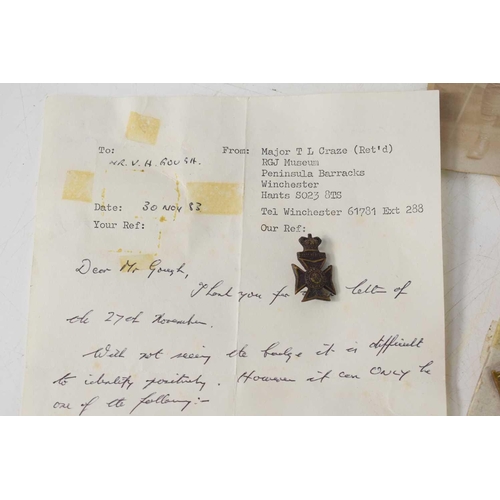 To: From: Major T L Craze (Ret'd)
MR. V. H. GOUGH. RGJ Museum
Peninsula Barracks
Winchester
Date: 30 NOV 83 Hants SO23 8TS
Tel Winchester 61781 Ext 288
Your Ref: Our Ref:
Dear Mr Gough,
Thank you for letter of
the 27th November.
With not seeing the badge it is difficult
to identify positively. However it can ONLY be
one of the following:-